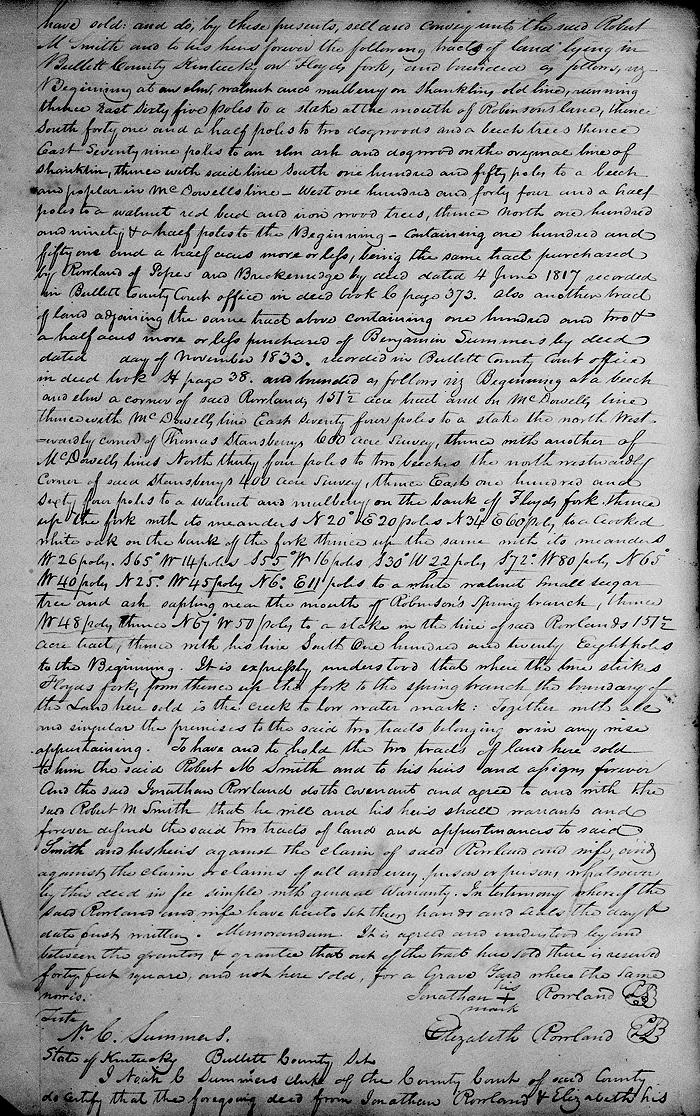 have sold: and do, by these presents, sell and convey unto the said Robert
M Smith and to his heirs forever the following tracts of land lying in
Bullett County Kentucky on Floyds fork, and bounded as follows, viz
Beginning at an elm, walnut and mulberry on Shanklins old line, running
thence East Sixty five poles to a stake at the mouth of Robinsons lane, thence
South forty one and a half poles to two dogwoods and a beech trees thence
East Seventy nine poles to an elm ash and dogwood on the original line of
Shanklin, thence with said line South one hundred and fifty poles to a beech
and poplar in McDowells line - West one hundred and forty four and a half
poles to a walnut red bud and iron wood trees, thence North one hundred
and ninety & a half poles to the Beginning - Containing one hundred and
fifty one and a half acres more or less, being the same tract purchased
by Rowland of Pope's and Breckenridge by deed dated 4 June 1817 recorded
in Bullett County Court office in deed book C page 373. also another tract
of land adjoining the same tract above containing one hundred and two &
a half acres more or less purchased of Benjamin Summers by deed
dated day of November 1833. recorded in Bullett County Court office
in deed book H page 38. and bounded as follows viz Beginning at a beech
and elm a corner of said Rowlands 151½ acre tract and on McDowells line
thence with McDowells line East Seventy four poles to a stake the north West
=wardly corner of Thomas Stansberrys 600 acre Survey, thence with another of
McDowells lines North thirty four poles to two beeches the north westwardly
Corner of said Stansberrys 400 acre Survey, thence East one hundred and
Sixty four poles to a walnut and mulberry on the bank of Floyds fork. thence
up the fork with its meanders N 20° E 20 poles N 34° E 60 poles to a crooked
white oak on the bank of the fork thence up the same with its meanders
W 26 poles. S 65° W 14 poles S 55° W 16 poles S 30° W 22 poles S 72° W 80 poles N 65°
W 40 poles N 25° W 45 poles N 6° E 11 poles to a white walnut small sugar
tree and ash sapling near the mouth of Robinson's Spring branch, thence
W 48 poles thence N 67 W 50 poles to a stake in the line of said Rowlands 151½
acre tract, thence with his line South One hundred and twenty Eight poles
to the Beginning. It is expressly understood that where the line strikes
Floyds fork, from thence up the fork to the spring branch the boundary of
the Land here sold is the creek to low water mark: Together with all
and singular the premises to the said two tracts belonging or in any wise
appurtaining. To have and to hold the two tracts of land here sold
to him the said Robert M Smith and to his heirs and assigns forever
And the said Jonathan Rowland doth covenant and agreed to and with the
said Robert M Smith that he will and his heirs shall warrant and
forever defend the said two tracts of land and appurtinances to said
Smith and his heirs against the claim of said Rowland and wife, and
against the claim or claims of all and every person or persons whatsoever
by this deed in fee simple with general Warranty. In testimony whereof the
said Rowland and wife have hereto set their hands and seals the day &
date first written. Memorandum It is agreed and understood by and
between the grantors & grantee that out of the tract here sold there is reserved
forty feet square, and not here sold, for a Grave Yard where the same
now is. his
Jonathan + Rowland
mark
Teste
N. C. Summers. Elizabeth Rowland
State of Kentucky Bullett County Sct
I Noah C Summers clerk of the County Court of said County
do certify that the foregoing deed from Jonathan Rowland & Elizabeth his